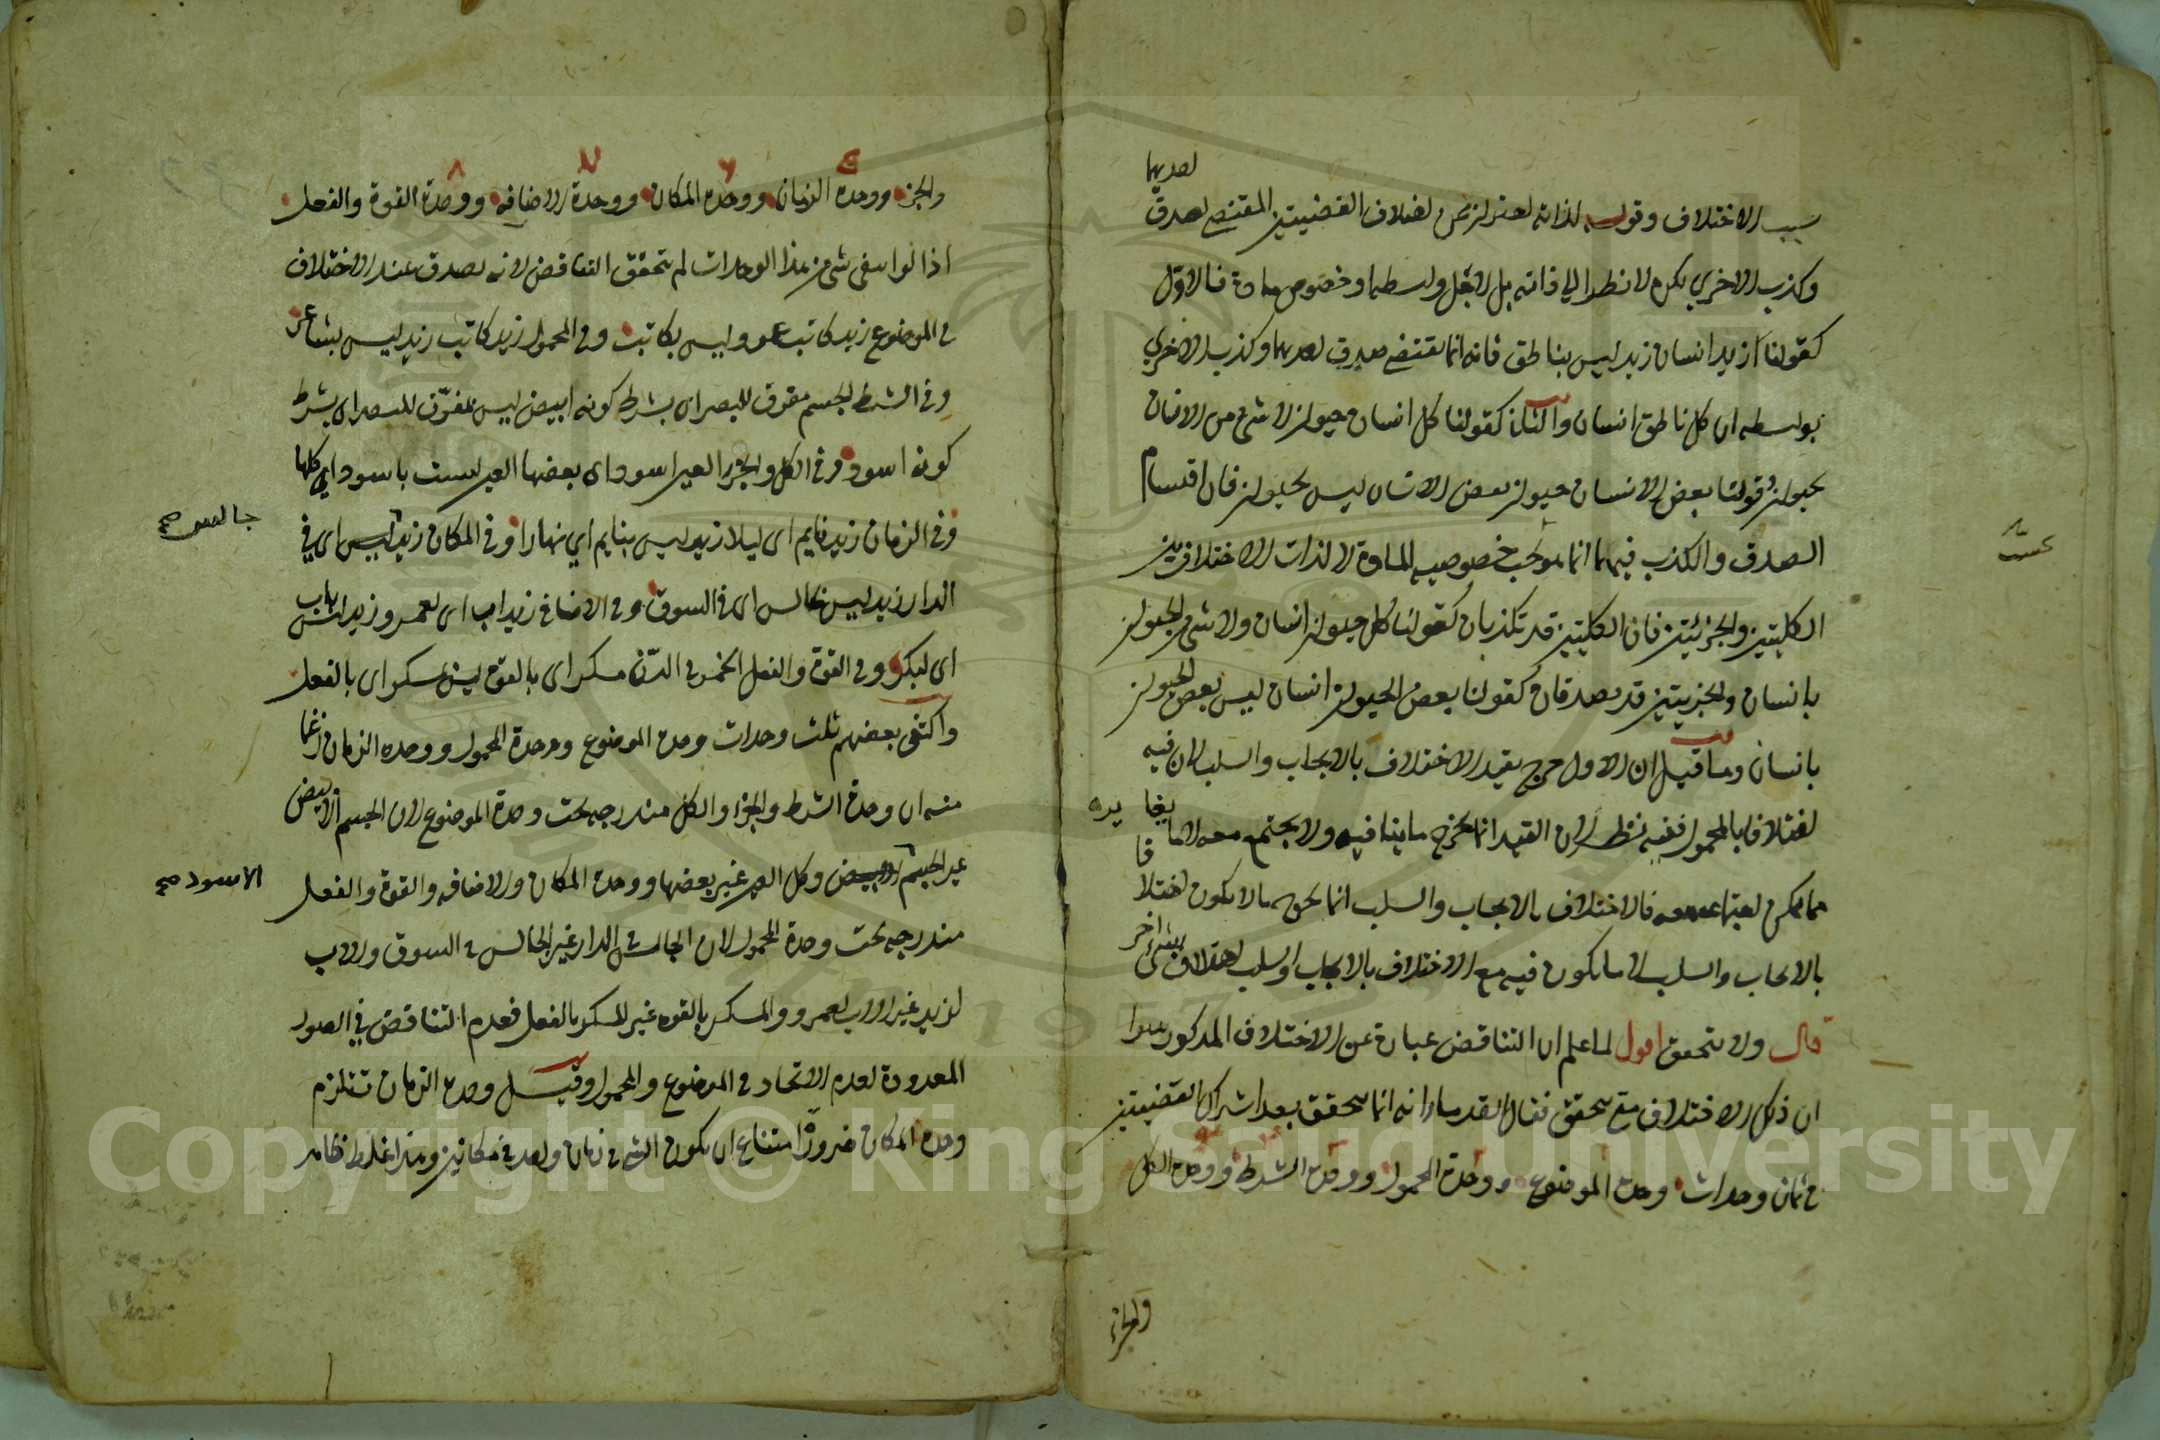 احديهما
سبب الاختلاف وقوله لذاته احتراز عن اختلاف القضيتين المقتضي لصدق
وكذب الاخري لكن لا نظرا الي ذاته بل لاجل واسطه او خصوص مادة فالاول
كقولنا زيد انسان زيد ليس بناطق فانه انما يقتضي صدق احديهما وكذب الاخري
بواسطه ان كل ناطق انسان والثاني كقولنا كل انسان حيوان لا شئ من الانسان
بحيوان وقولنا بعض الانسان حيوان بعض الانسان ليس بحيوان فان اقتسام
الصدق والكذب فيهما انما بخصوصيه المادة لا لذات الاختلاف بين
الكليتين والجزئيتين فان الكليتين قد تكذبان كقولنا كل حيوان انسان ولا شئ من الحيوان
بانسان والجزئيتين قد تصدقان كقولنا بعض الحيوان انسان ليس بعض الحيوان
بانسان وما قيل ان الاول خرج بقيد الاختلاف بالايجاب والسلب لان فيه
اختلافا بالمحمول ففيه نظر لان القيد انما يخرج ما ينافيه ولا يجتمع معه لا ما يغايره
مما يمكن اجتماعه معه فالاختلاف بالايجاب والسلب انما يخرج ما لا يكون اختلافا
بالايجاب والسلب لا ما يكون فيه مع الاختلاف بالايجاب والسلب اختلاف بشئ اخر
قال ولا يتحقق اقول لما علم ان التناقض عبارة عن الاختلاف المذكور
ان ذلك الاختلاف متي يتحقق فقال القدماء انه انما يتحقق بعد اشتراك القضيتين
في ثمان وحدات وحدة الموضوع ووحدة المحمول ووحدة الشرط ووحدة الكل
والجزء
والجزء ووحدة الزمان ووحدة المكان ووحدة الاضافه ووحدة القوة والفعل
اذا لو انتفى شئ من هذا الوحدات لم يتحقق التناقض لانه يصدق عند الاختلاف
في الموضوع زيد كاتب عمرو ليس بكاتب وفي المحمول زيد كاتب زيد ليس بشاعر
وفي الشرط الجسم مفرق للبصر اى بشرط كونه ابيض ليس بمفرّق للبصر اى بشرط
كونه اسود وفي الكل والجزء العين اسود اى بعضها العين ليست باسود اي كلها
وفي الزمان زيد نايم اى ليلا زيد ليس بنايم اي نهارا وفي المكان زيد ليس اى في
جالس صح
الدار زيد ليس بجالس اى في السوق وفي الاضافة زيد اب اى لعمرو زيد ليس باب
اى لبكر وفي القوة والفعل الخمر في الدّن مسكر اى بالقوة ليس بمسكر اى بالفعل
واكتفى بعضهم بثلث وحدات وحدة الموضوع ووحدة المحمول ووحده الزمان زعما
منه ان وحدة الشرط والجزء والكل مندرجه تحت وحدة الموضوع لان الجسم الابيض
غير الجسم وكل العين غير بعضها ووحدة المكان والاضافه والقوة والفعل
الاسود صح
مندرجه تحت وحدة المحمول لان الجالس في الدار غير الجالس في السوق والاب
لزيد غير الاب لعمرو والمسكر بالقوه غير المسكر بالفعل فعدم التناقض في الصور
المعدودة لعدم الاتحاد في الموضوع والمحمول وقيل وحدة الزمان تستلزم
وحدة المكان ضرورة امتناع ان يكون الشئ في زمان واحد في مكانين وهذا غلط ظاهر
Copyright © King Saud University